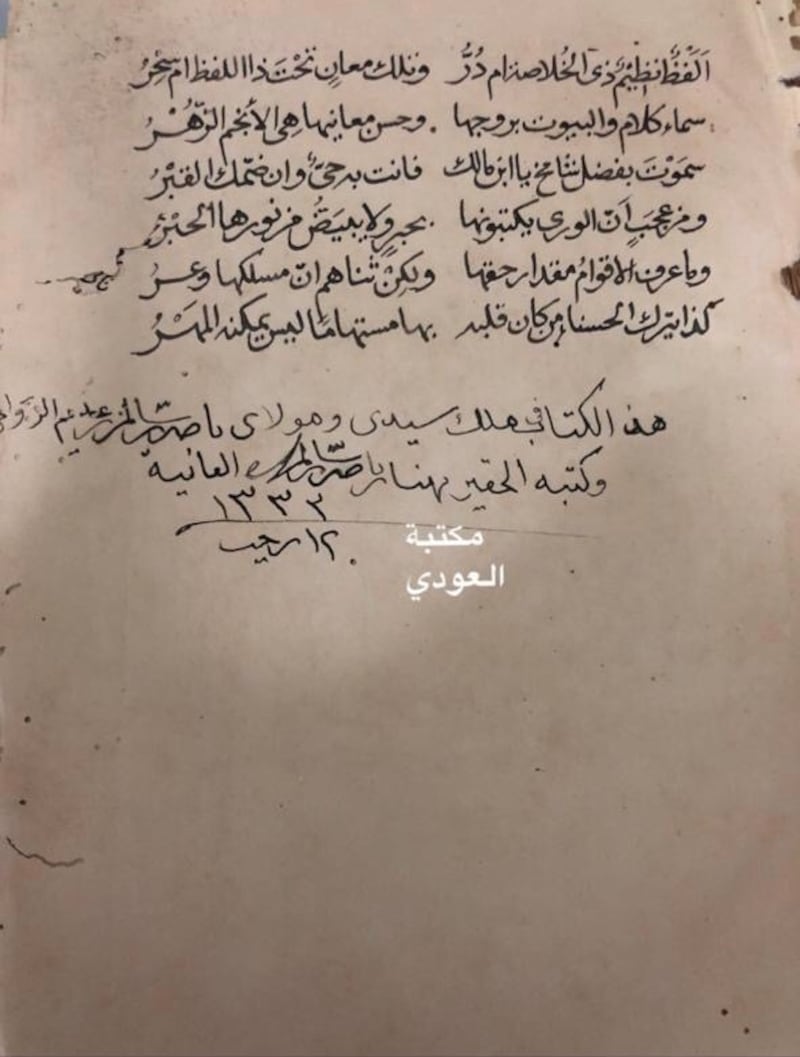 أَلَفْظٌ نظيمٌ ذى الخُلاصة ام دُرُّ وتلك معانٍ تحْتَ ذا اللفظ ام سِحْرُ
سماء كلام والبيوت بروجها وحسن معانيها هى الأنجم الزُّهْرُ
سموْتَ بفضل شامخ يا ابن مالك فانت به حىٌّ وان ضمّك القبْرُ
ومن عجَبٍ أنّ الورى يكتبونها بحبرٍ ولا يبيَضُّ من نورها الحبْرُ
وما عرف الاقوامُ مقدار حقها ولكِنْ ثناهم انّ مسلكها وعْرُ
كذا يترك الحسناء من كان قلبه بها مستهامًا ليس يمكنه المهَرُ
هذ الكتاب في ملك سيدى ومولاى
وكتبه الحقير مهنا بن العانية
١٣٣٢
١٢ رجب
مكتبة
العودي